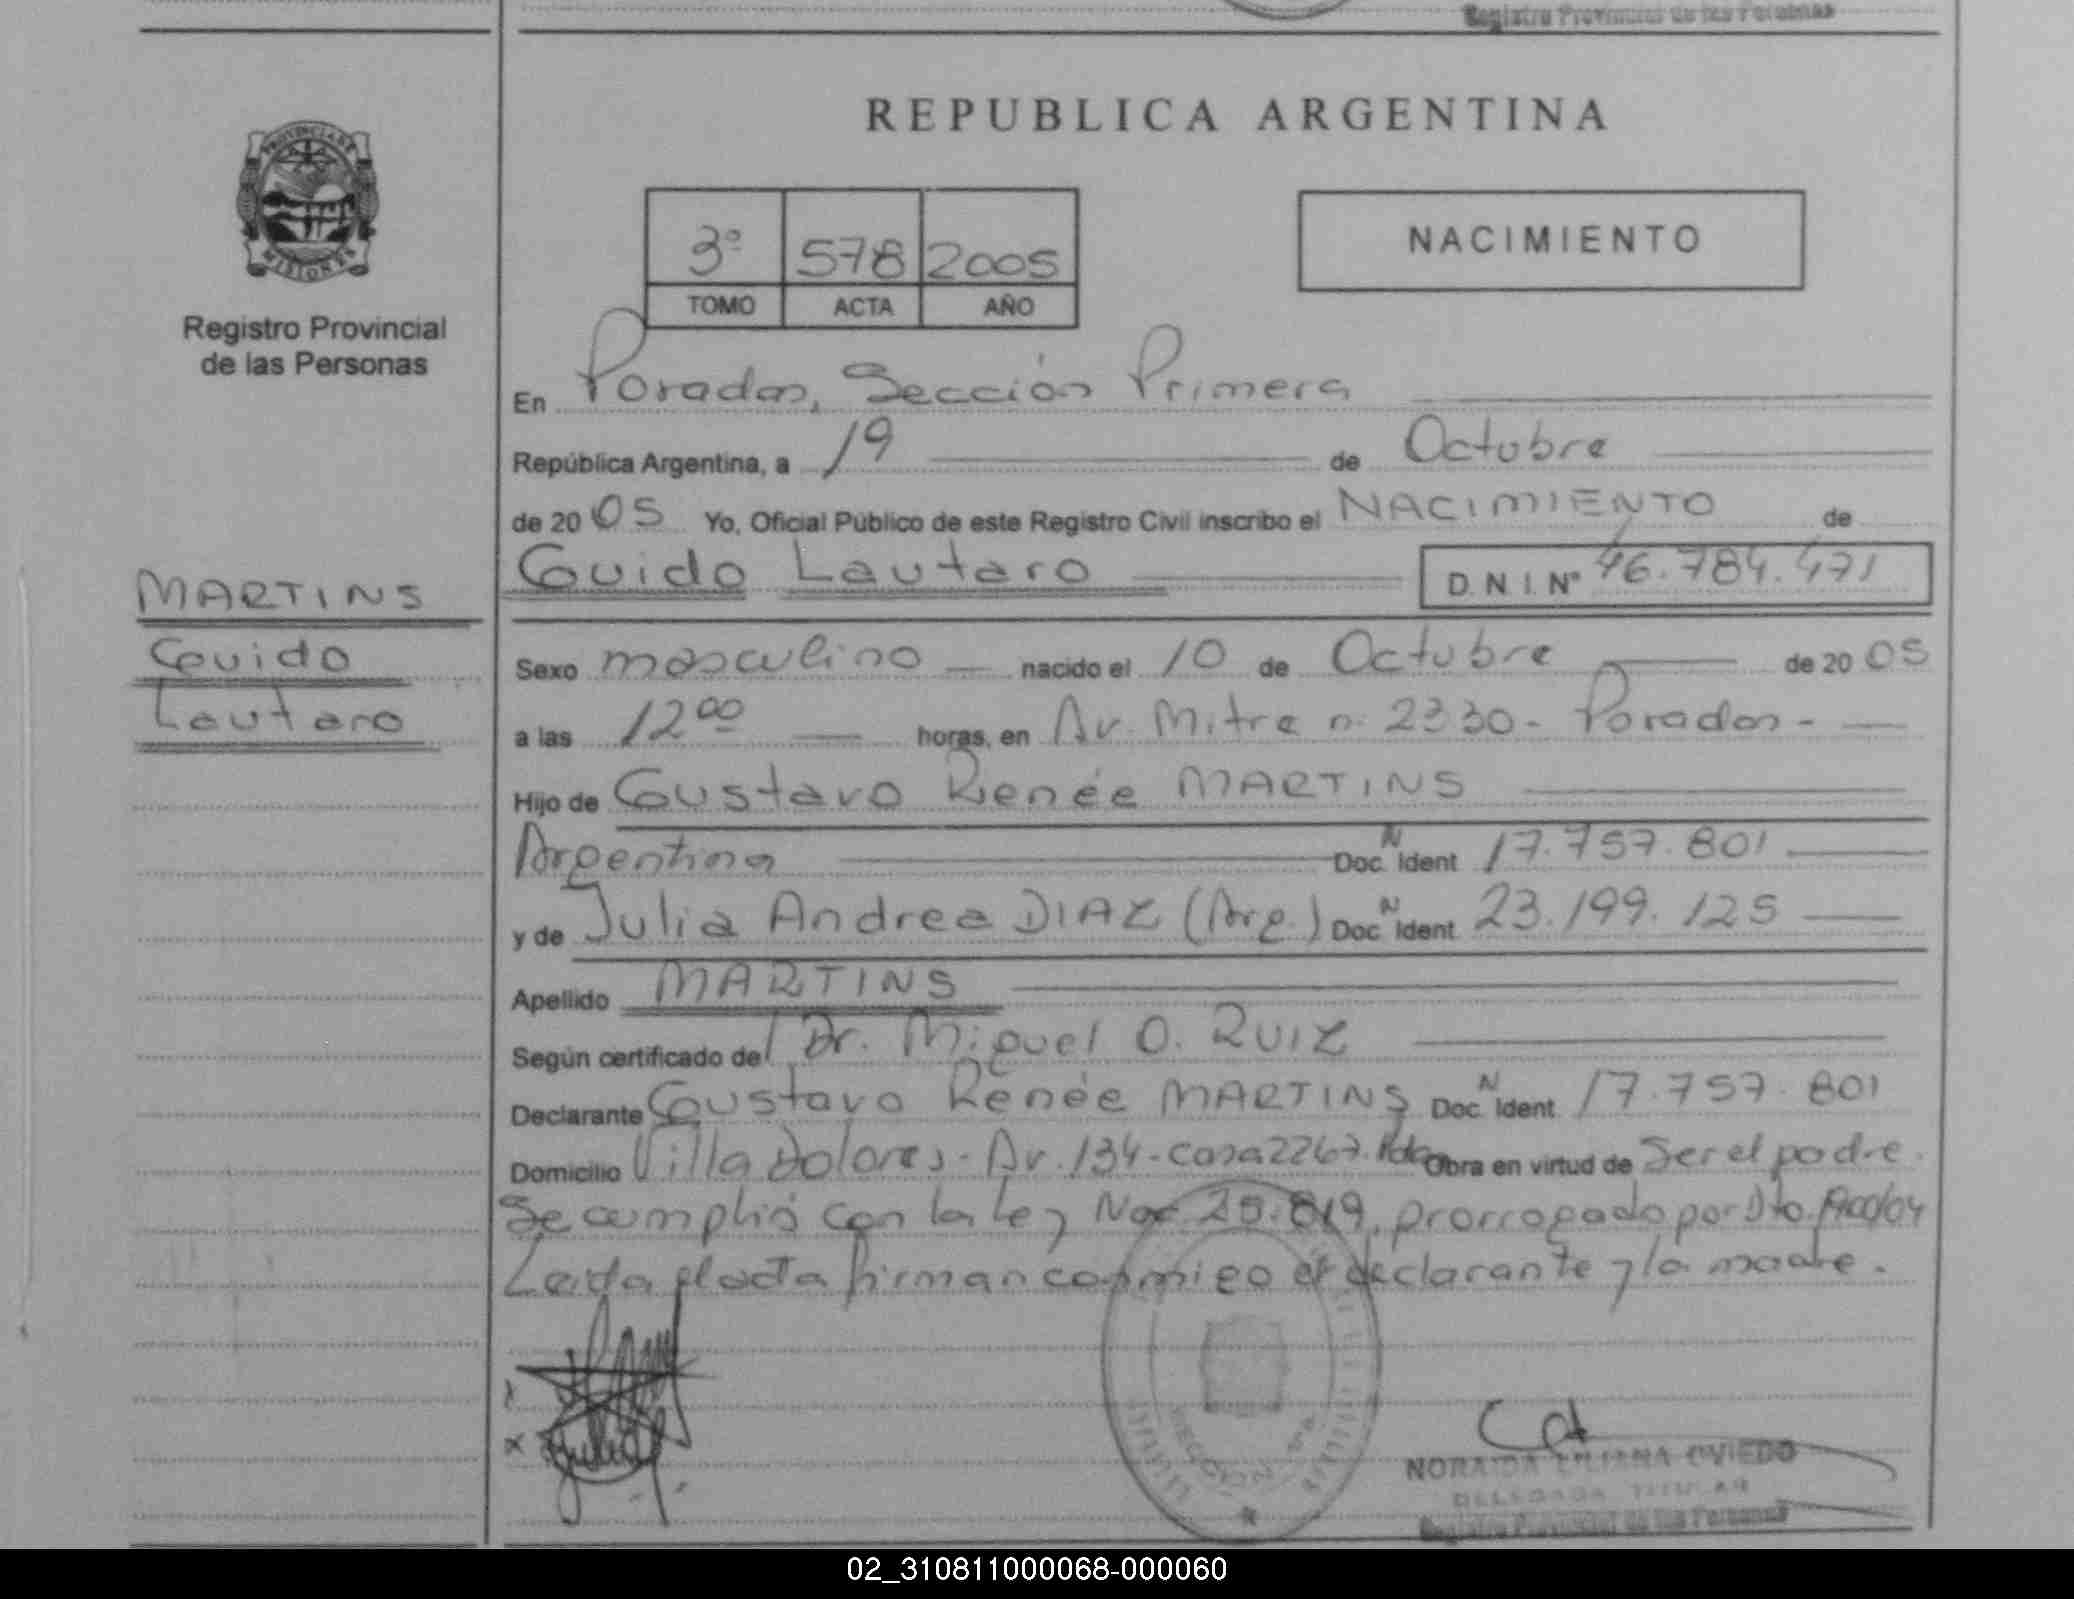 Registro Provincial de las Personas
REPUBLICA ARGENTINA
PROVINCIA DE
MISIONES
Registro Provincial
de las Personas
3º 578 2005
TOMO ACTA AÑO
NACIMIENTO
En Posadas, Sección Primera
República Argentina, a 19 de Octubre
de 2005 Yo, Oficial Público de este Registro Civil inscribo el NACIMIENTO de
Guido Lautaro D.N.I. Nº 46.784.471
MARTINS
Guido
Lautaro
Sexo masculino nacido el 10 de Octubre de 2005
a las 12 00 horas, en Av. Mitre n. 2330 - Posadas -
Hijo de Gustavo Renée MARTINS
Argentina Doc. N Ident 17.757.801
y de Julia Andrea DIAZ (Arg.) Doc. N Ident 23.199.125
Apellido MARTINS
Según certificado del Dr. Miguel O. RUIZ
Declarante Gustavo Renée MARTINS Doc. N Ident 17.757.801
Domicilio Villa Dolores - Av. 134 - casa 2267. Pdas Obra en virtud de Ser el padre.
Se cumplió con la Ley Nac 25.819, prorrogado por Dto.
Leida el acta firman conmigo el declarante y la madre.
NORAIDA LILIANA OVIEDO
DELEGADA TITULAR
Registro Provincial de las Personas
02_310811000068-000060